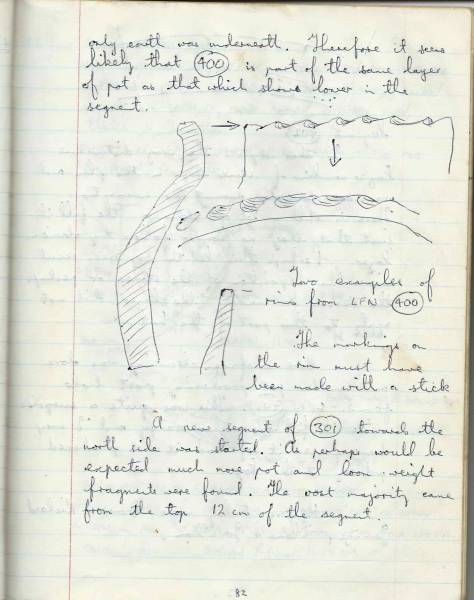 only earth was underneath. Therefore it seems
likely that (400) is part of the same layer
of pot as that which shows lower in the
segment.
Two examples of
rims from LFN (400)
The markings on
the rim must have
been made with a stick
A new segment of (301) towards the
north side was started. As perhaps would be
expected much more pot and loom-weight
fragments were found. The vast majority came
from the top 12 cm of the segment.
82